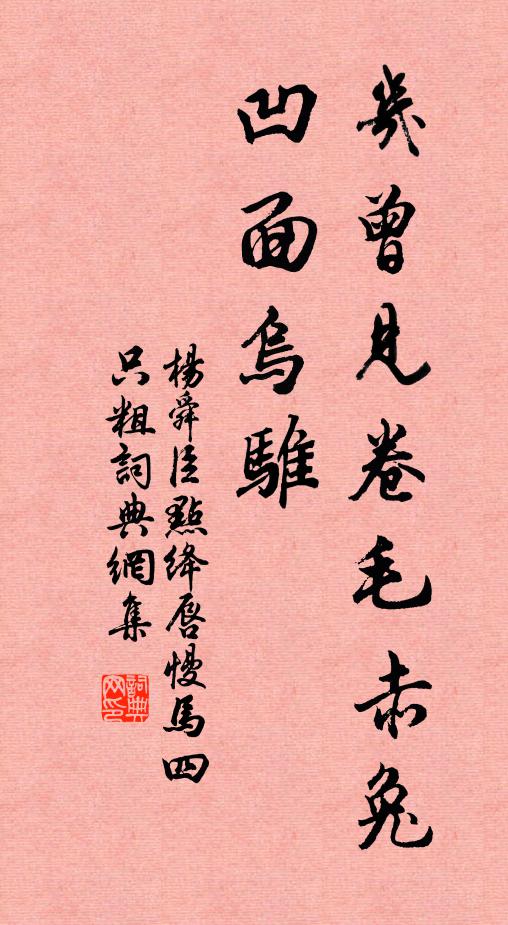 幾曾見卷毛赤兔
凹面烏騅
楊舜臣點絳唇慢馬四
只粗詞典網集
詞典網印